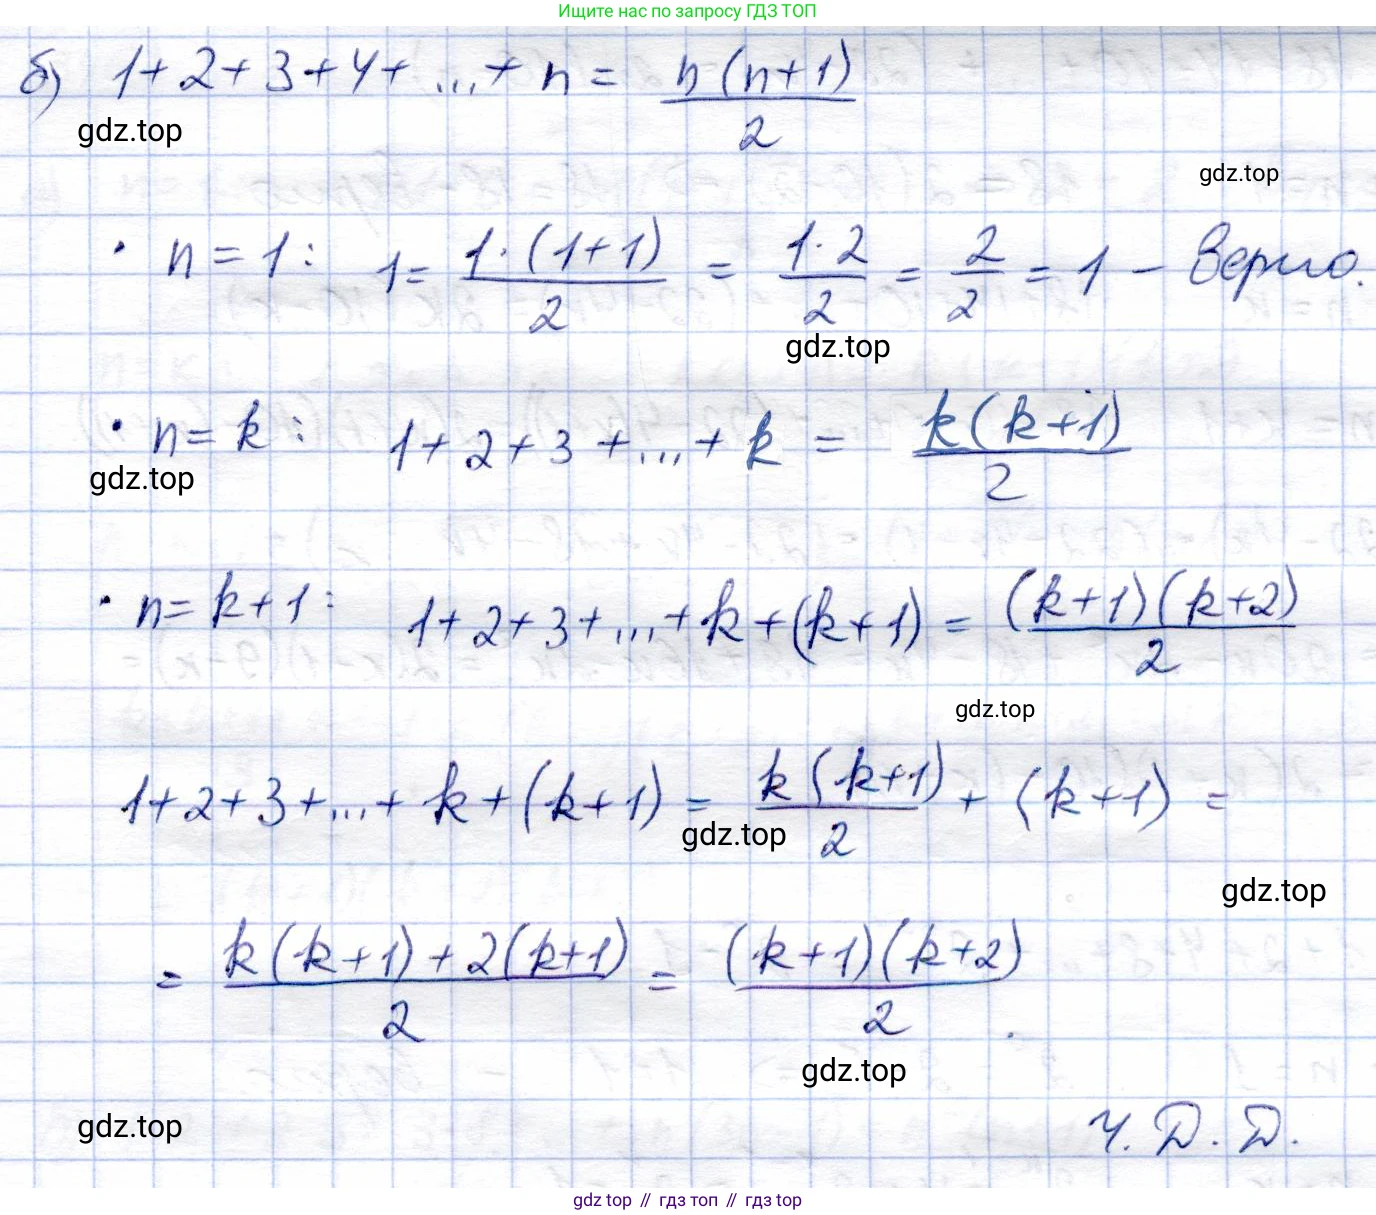 Ищите нас по запросу ГДЗ ТОП
б) 1+2+3+4+...+n = n(n+1)/2
gdz.top
gdz.top
· n=1: 1 = 1·(1+1)/2 = 1·2/2 = 2/2 = 1 – Верно.
gdz.top
· n=k: 1+2+3+...+k = k(k+1)/2
gdz.top
· n=k+1: 1+2+3+...+k+(k+1) = (k+1)(k+2)/2
gdz.top
1+2+3+...+k+(k+1) = k(k+1)/2 + (k+1) =
gdz.top
gdz.top
= k(k+1)+2(k+1)/2 = (k+1)(k+2)/2.
gdz.top
gdz.top
Ч.Д.Д.
gdz top // гдз топ // гдз top